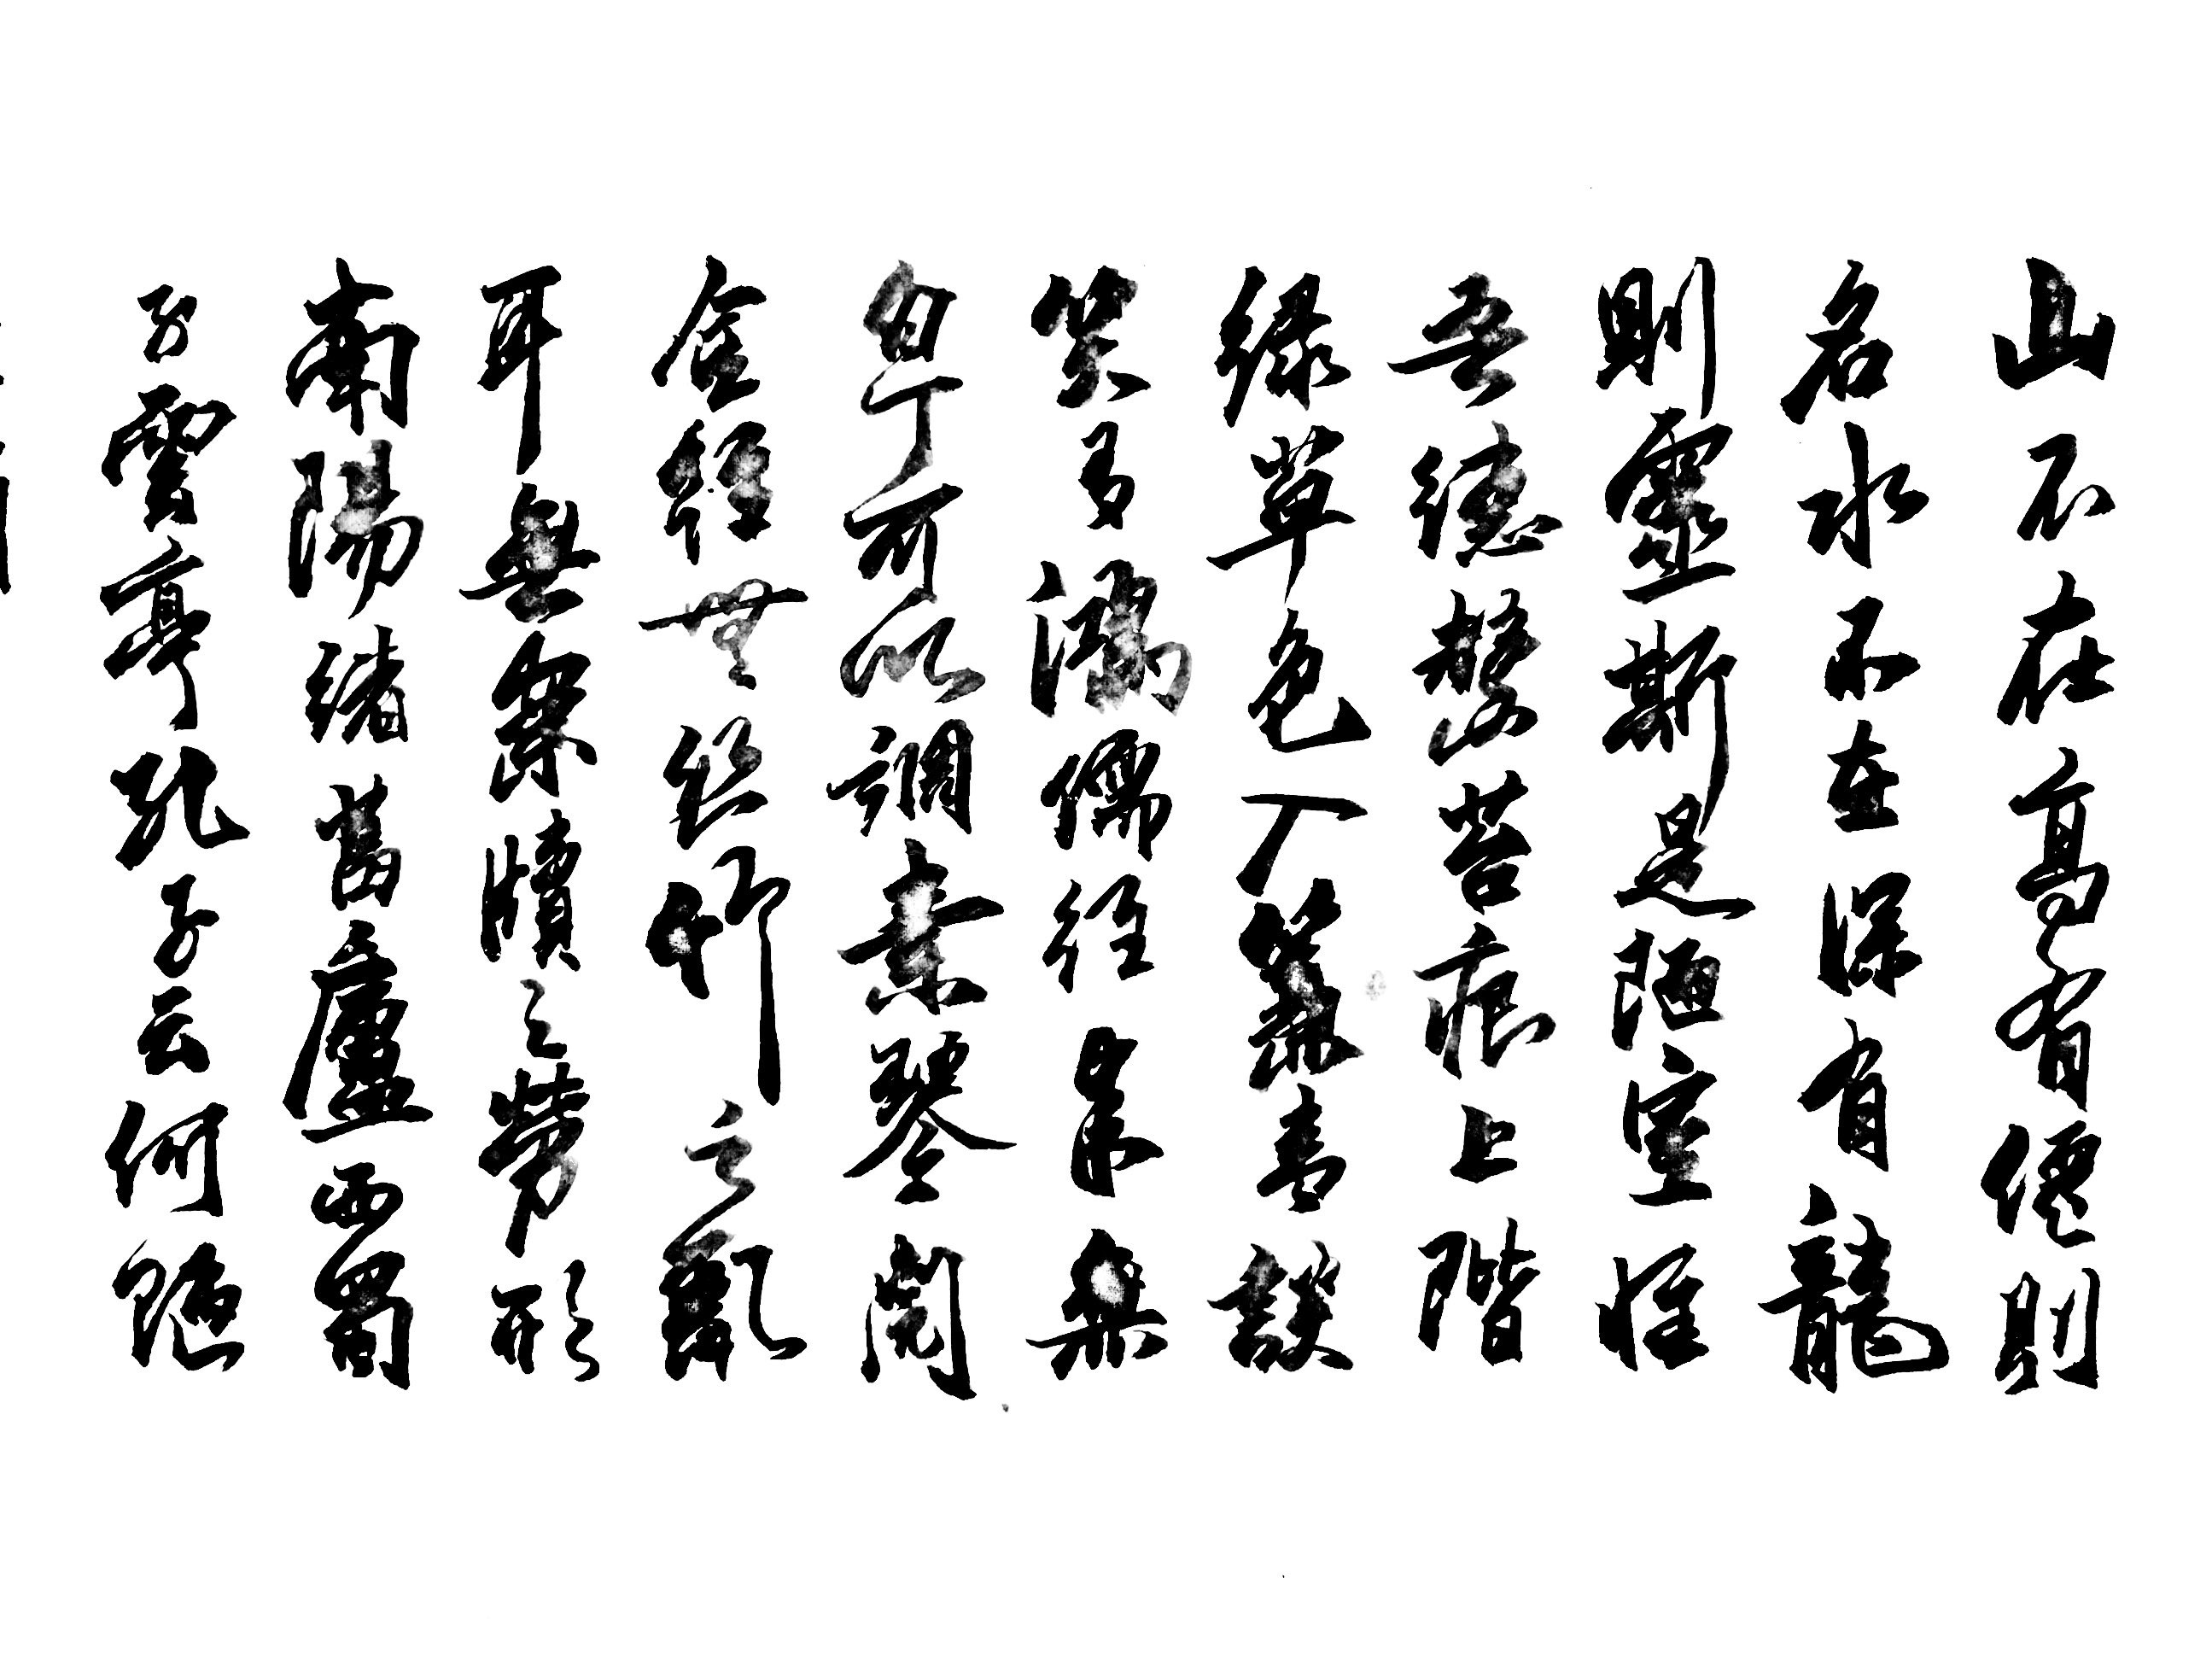 山不在高有僊則
名水不在深有龍
則靈斯是陋室惟
吾德馨苔痕上階
綠草色入簾青談
笑有鴻儒往來無
白丁可以調素琴閱
金經無絲竹之亂
耳無案牘之勞形
南陽諸葛廬西蜀
子雲亭孔子云何陋